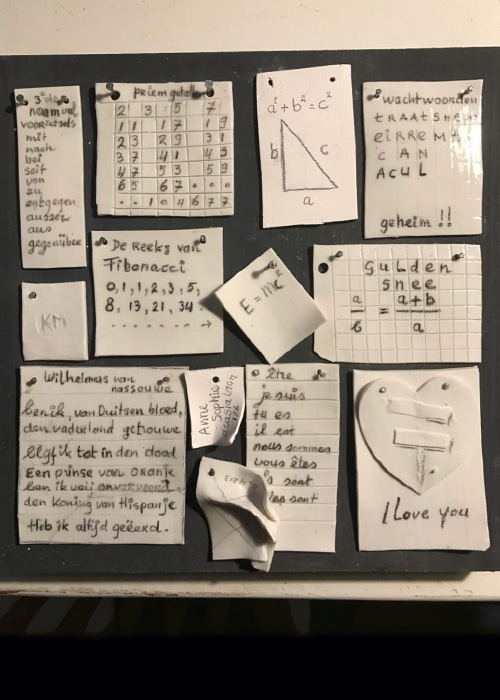 3e de
naamval
voorzetsels
mit
nach
bei
seit
von
zu
entgegen
ausser
aus
gegenüber
priemgetallen
2 3 5 7
11 17 19
23 29 31
37 41 43
47 53 59
65 67 . .
. . 104677
a² + b² = c²
b c
a
wachtwoorden
TRAATSNEP
EIRREMA
CAN
ACUL
geheim !!
KM
De Reeks van
Fibonacci
0, 1, 1, 2, 3, 5,
8, 13, 21, 34
E = mc²
Gulden
snee
a = a+b
b a
Wilhelmus van
nassouwe
ben ik, van Duitsen bloed,
den vaderland getrouwe
blijf ik tot in den dood
Een prinse van Oranje
ben ik vrij onverveerd
den koning van Hispanje
Heb ik altijd geëerd.
Anne
Sophie
acacialaan
être
je suis
tu es
il est
nous sommes
vous êtes
s sont
les sont
I Love you